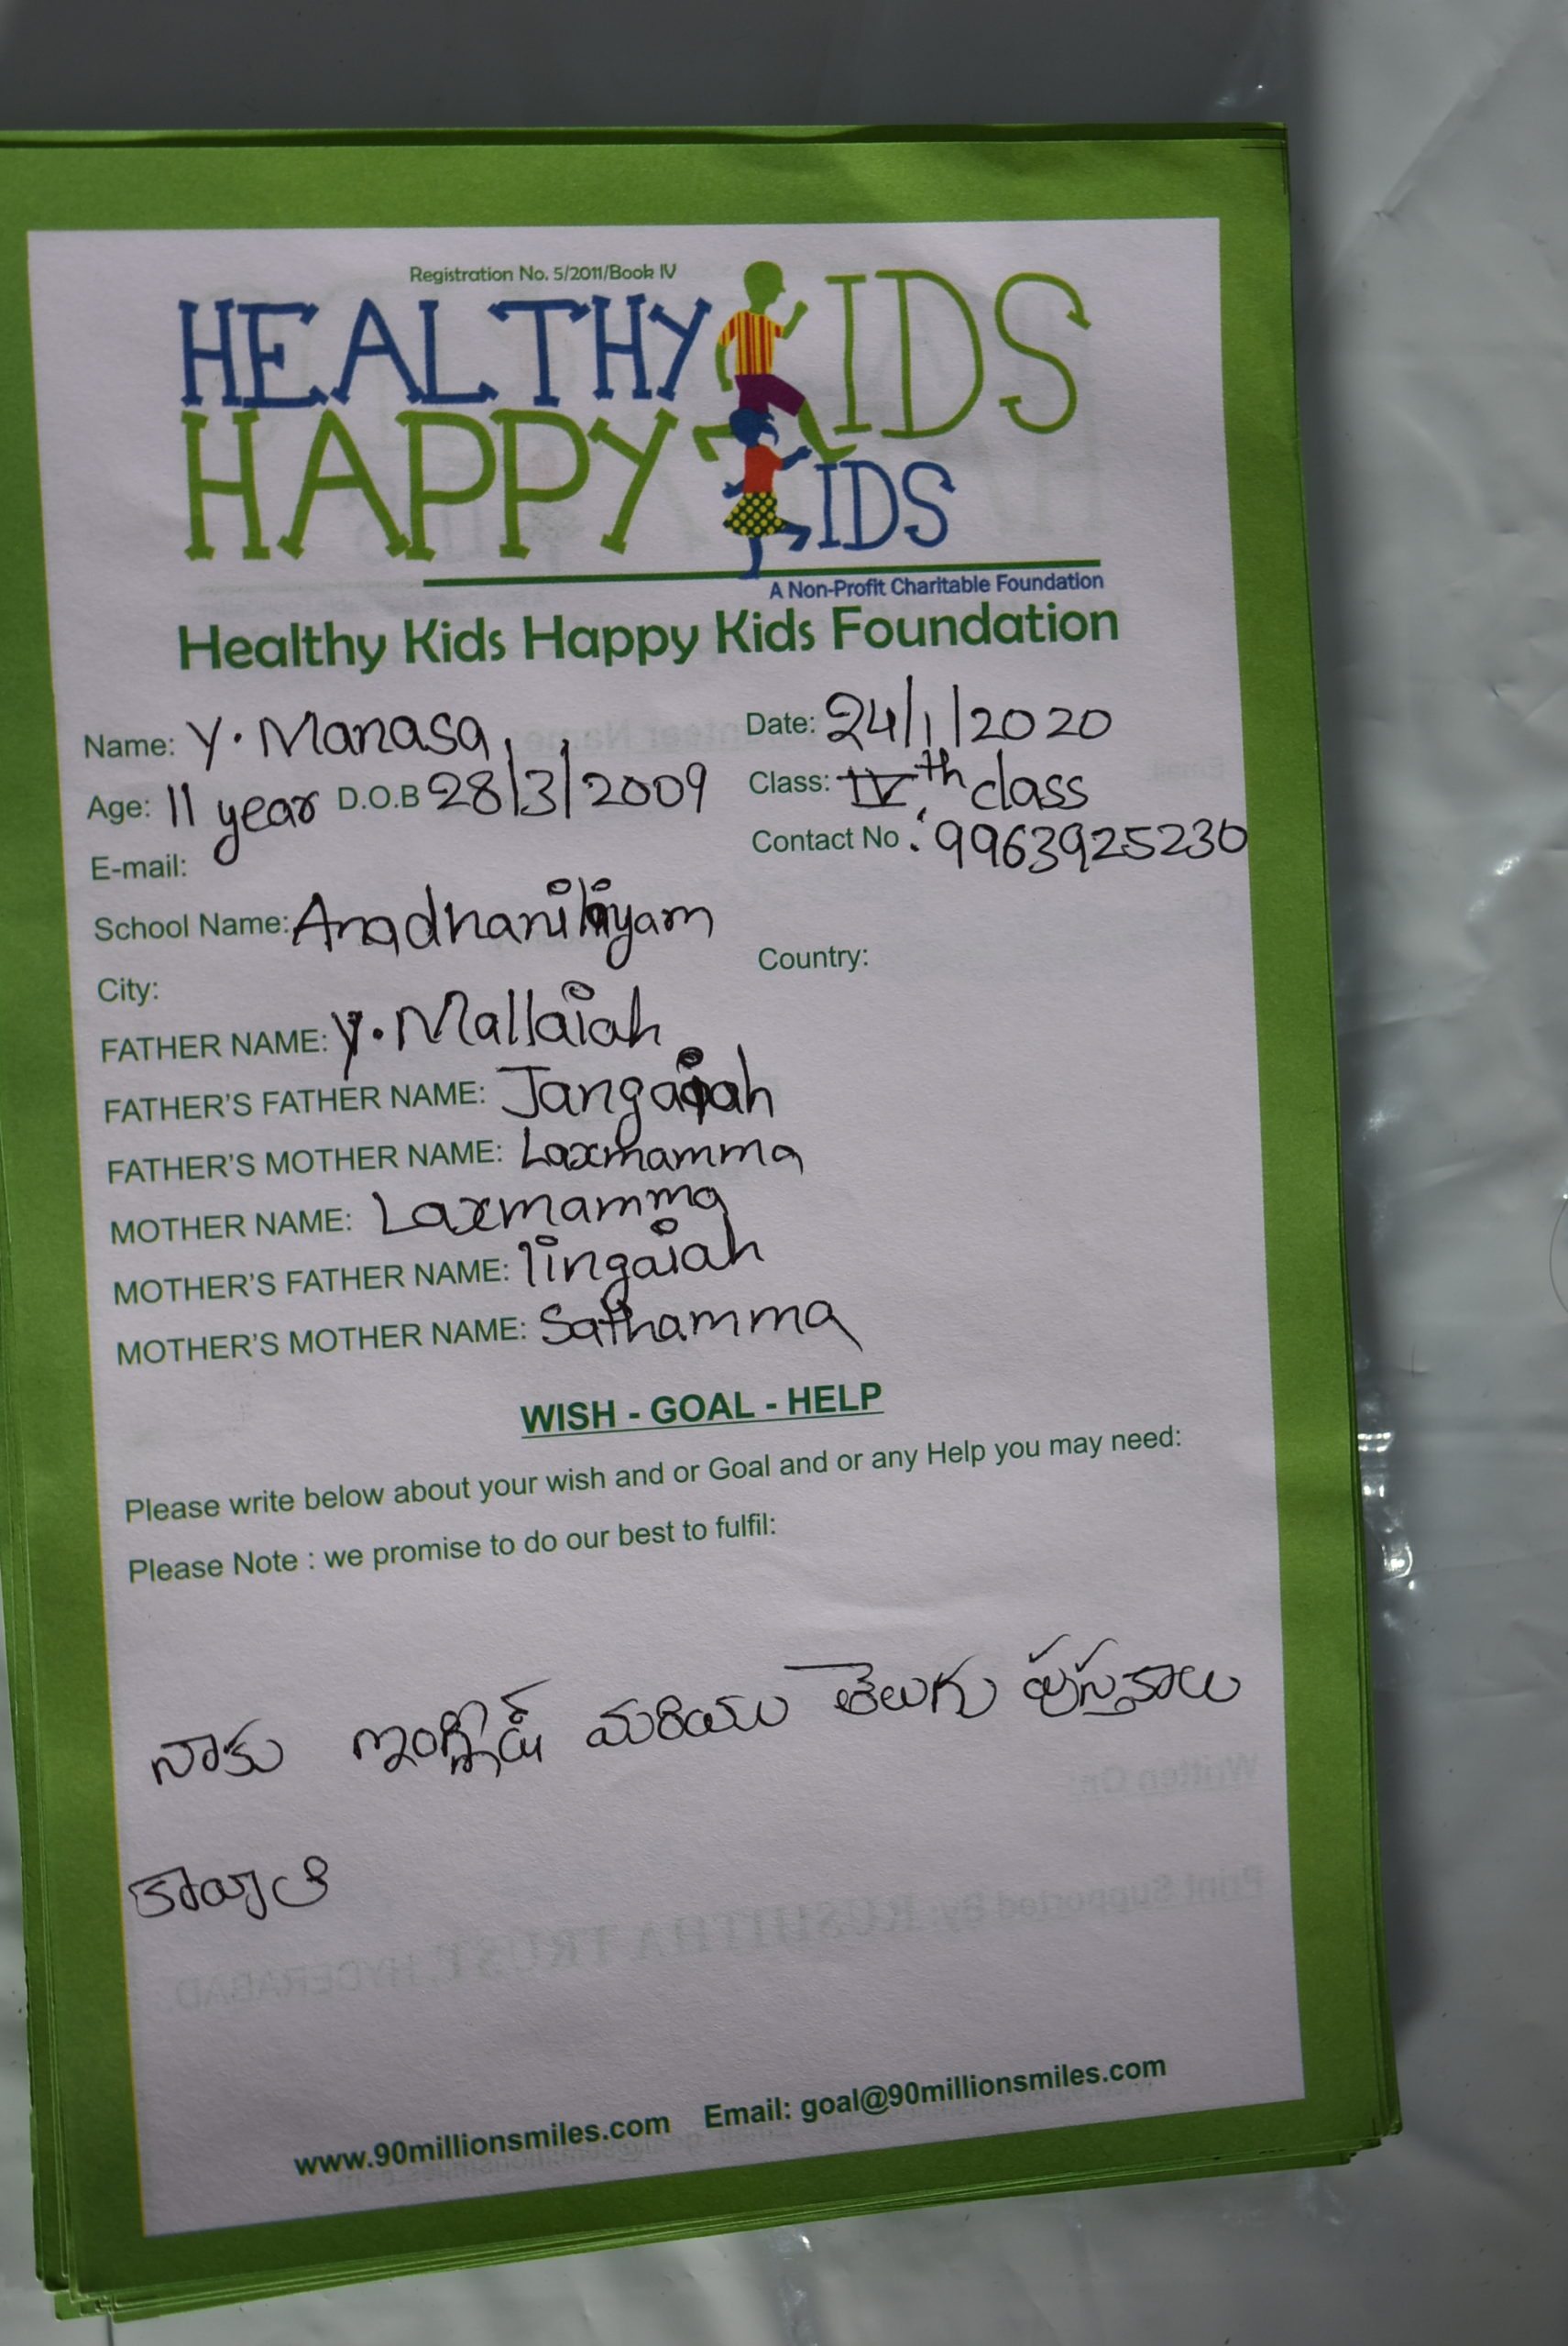 Registration No. 5/2011/Book IV
HEALTHY KIDS
HAPPY KIDS
A Non-Profit Charitable Foundation
Healthy Kids Happy Kids Foundation
Name: Y. Manasa Date: 24/1/2020
Age: 11 year D.O.B 28/3/2009 Class: IVth class
E-mail: Contact No : 9963925230
School Name:
City: Country:
FATHER NAME: Y. Mallaiah
FATHER'S FATHER NAME: Jangaiah
FATHER'S MOTHER NAME: Laxmamma
MOTHER NAME: Laxmamma
MOTHER'S FATHER NAME: lingaiah
MOTHER'S MOTHER NAME: Sathamma
WISH - GOAL - HELP
Please write below about your wish and or Goal and or any Help you may need:
Please Note : we promise to do our best to fulfil:
నాకు ఇంగ్లీష్ మరియు తెలుగు పుస్తకాలు
కావాలి
www.90millionsmiles.com Email: goal@90millionsmiles.com